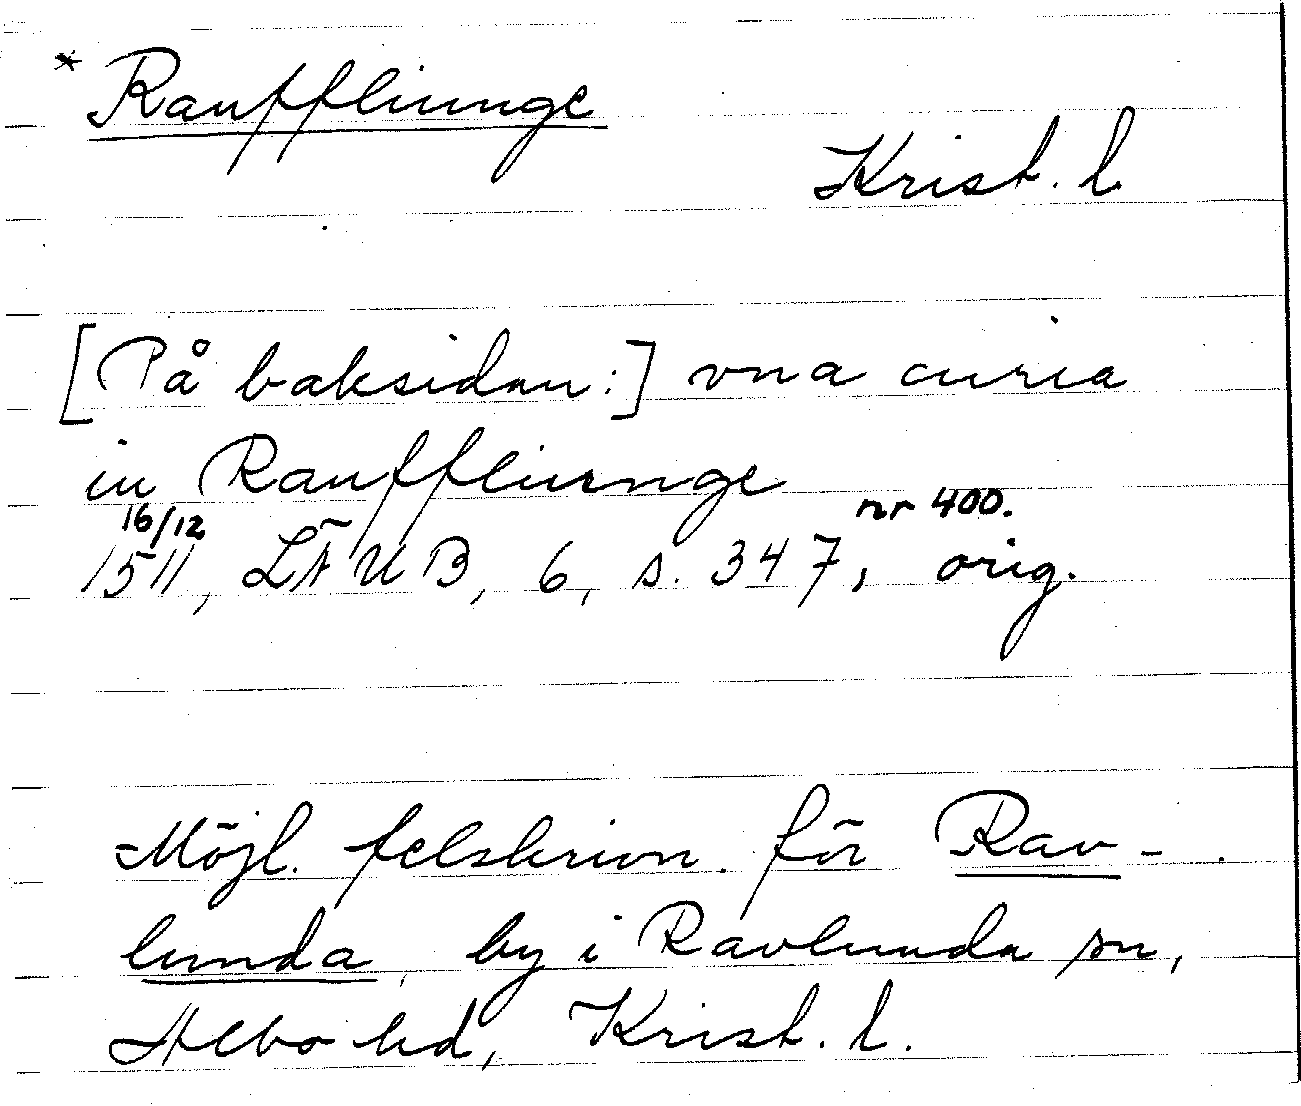 * Rauffliunge
Krist. l
[På baksidan:] vna curia
in Rauffliunge
16/12 nr 400.
1511, LÄUB, 6, s. 347, orig.
Möjl. felskrivn. för Rav-
lunda, by i Ravlunda sn,
Albo hd, Krist. l.